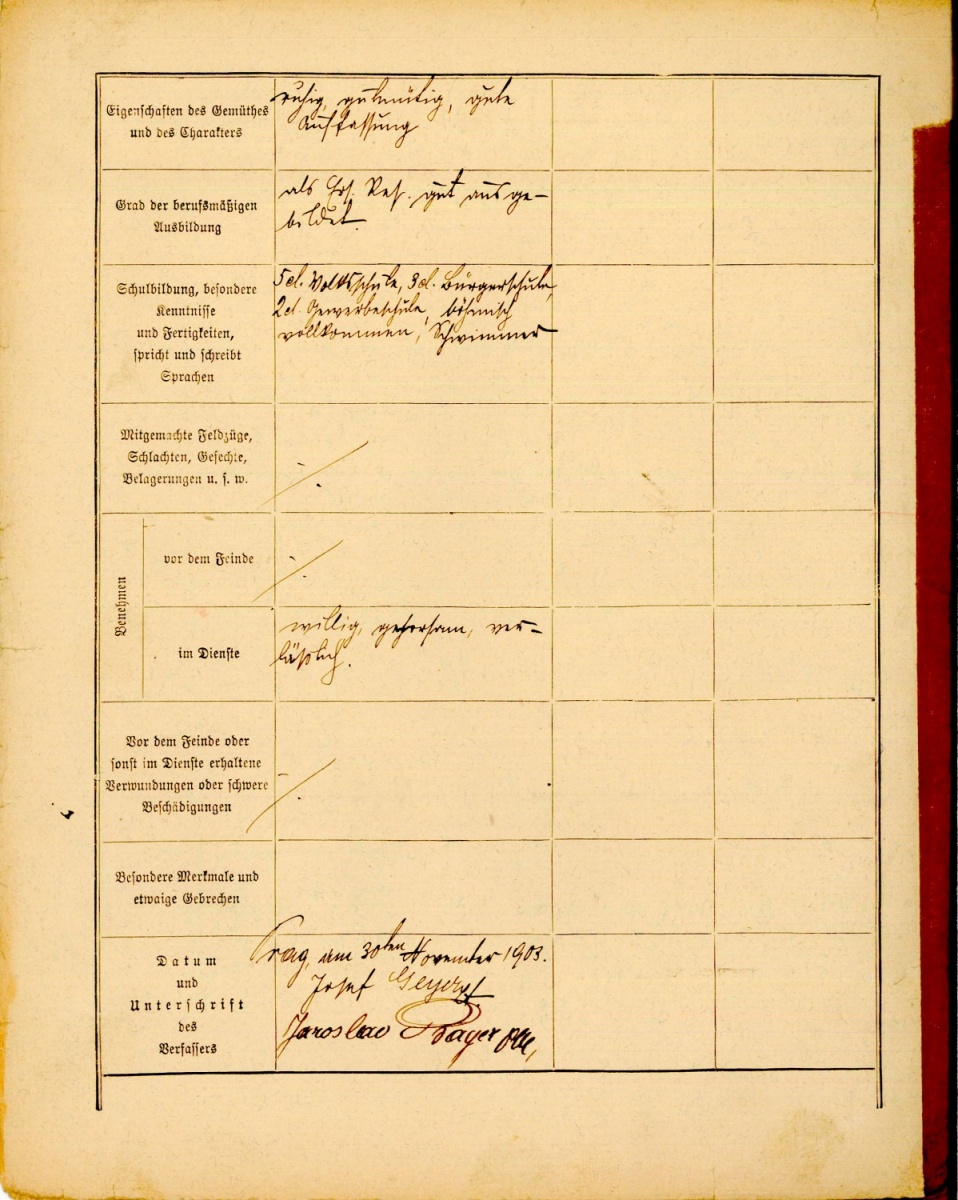 Eigenschaften des Gemüthes
und des Charakters
ruhig, gutmütig, gute
Auffassung
Grad der berufsmäßigen
Ausbildung
als Ers. Res. gut ausge-
bildet.
Schulbildung, besondere
Kenntnisse
und Fertigkeiten,
spricht und schreibt
Sprachen
5 cl. Volksschule, 3 cl. Bürgerschule,
2 cl. Gewerbeschule, böhmisch
vollkommen, Schwimmer
Mitgemachte Feldzüge,
Schlachten, Gefechte,
Belagerungen u. s. w.
Benehmen
vor dem Feinde
im Dienste
willig, gehorsam, ver-
läßlich.
Vor dem Feinde oder
sonst im Dienste erhaltene
Verwundungen oder schwere
Beschädigungen
Besondere Merkmale und
etwaige Gebrechen
Datum
und
Unterschrift
des
Verfassers
Prag, am 30ten November 1903.
Josef
Jaroslav